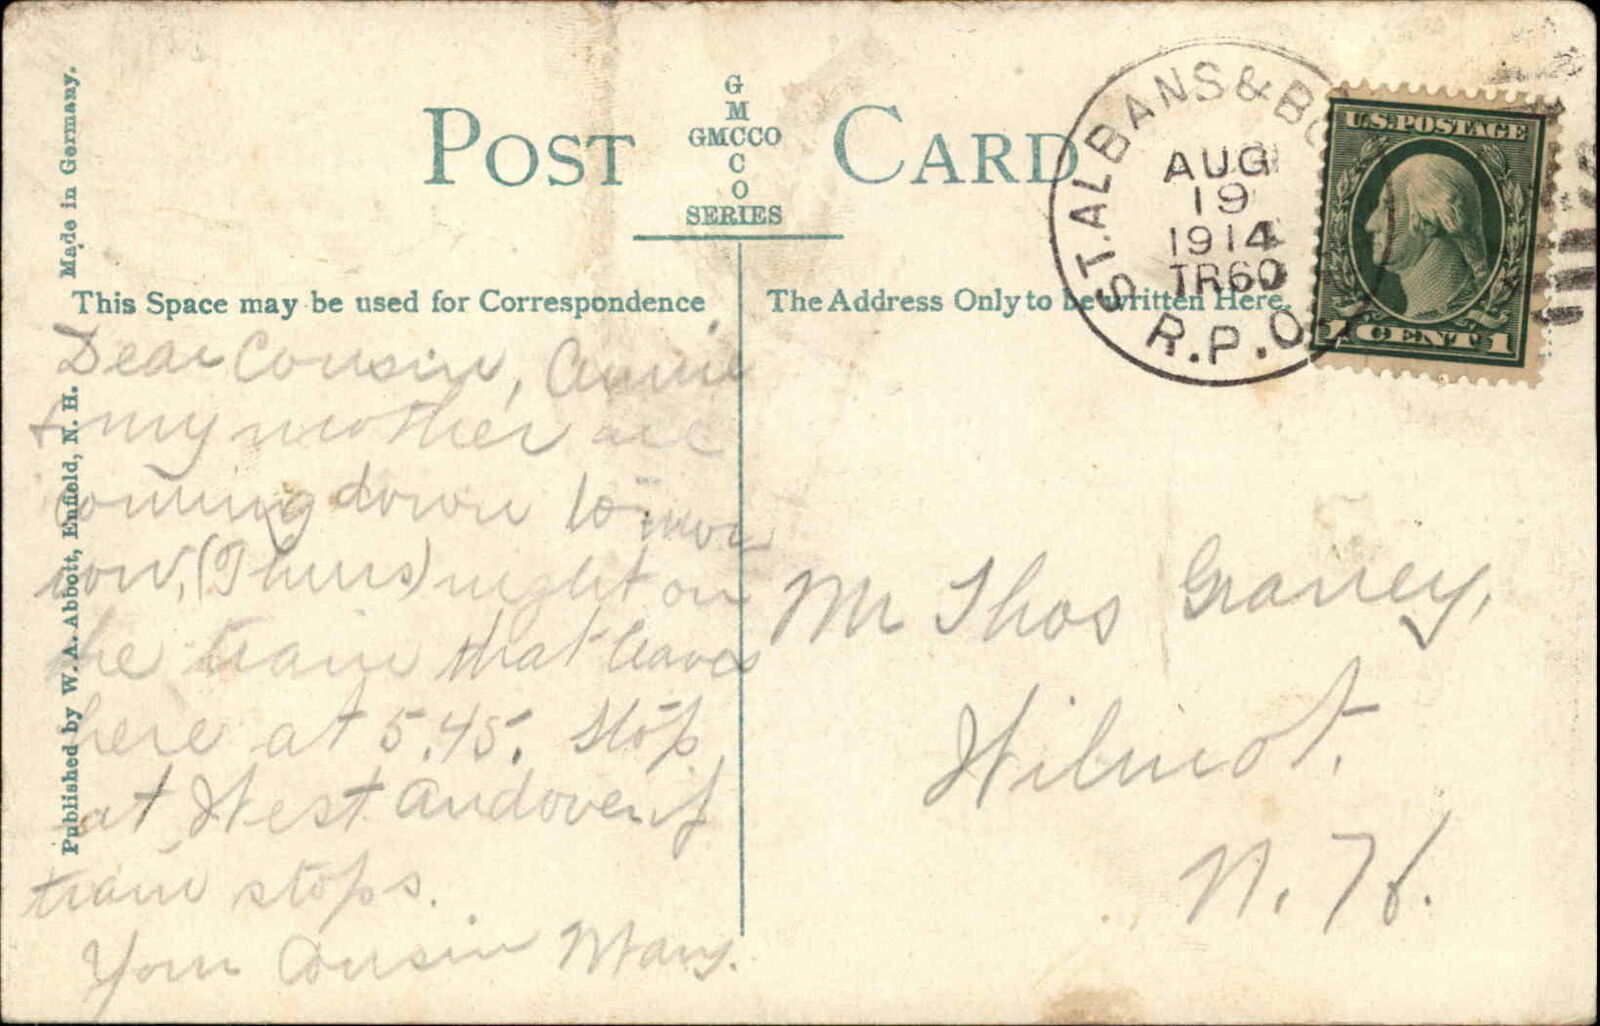 POST CARD
G
M
GMCCO
C
O
SERIES
Made in Germany.
Published by W. A. Abbott, Enfield, N. H.
This Space may be used for Correspondence
The Address Only to be written Here.
ST. ALBANS & BO
AUG
19
1914
TR60
R.P.O.
U.S. POSTAGE
1 CENT 1
Dear Cousin, Annie
& my mother are
coming down tomor
row, (Thurs) night on
the train that leaves
here at 5.45. Stop
at West Andover if
train stops.
Your Cousin Mary.
Mr Thos Graney,
Wilmot,
N. H.